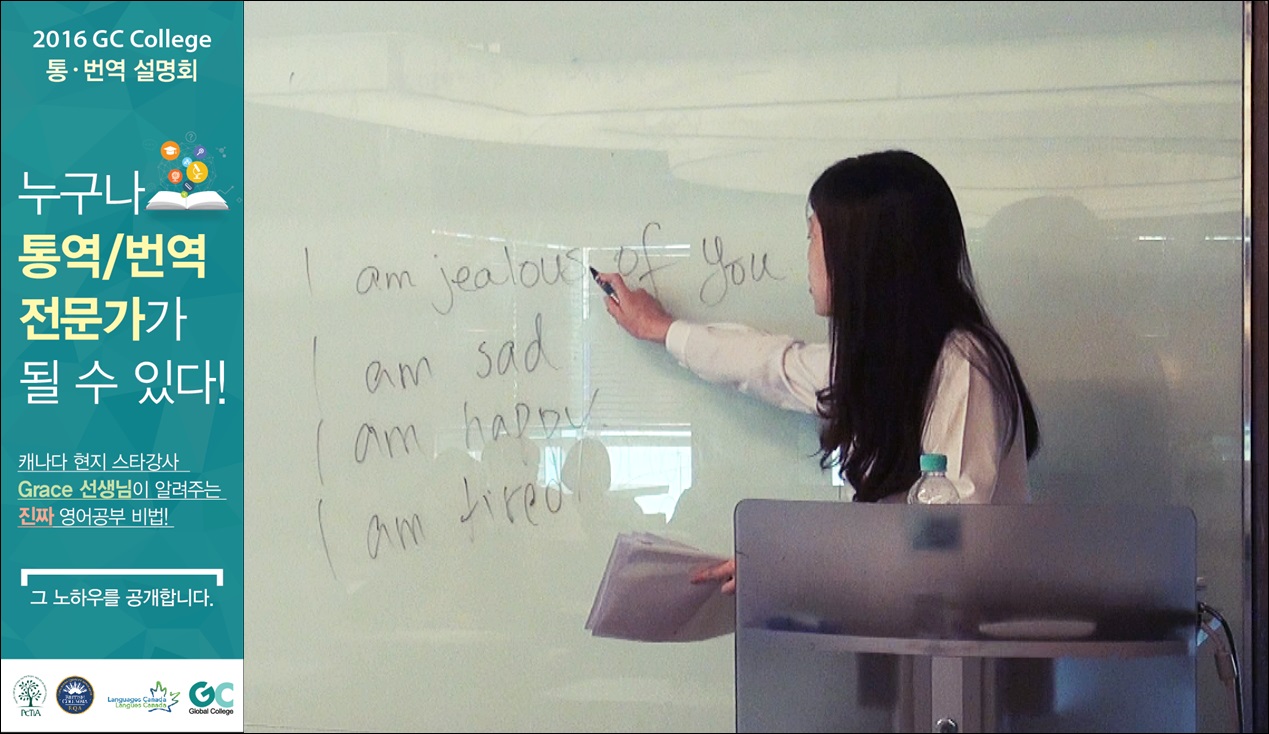 2016 GC College
통·번역 설명회
누구나
통역/번역
전문가가
될 수 있다!
캐나다 현지 스타강사
Grace 선생님이 알려주는
진짜 영어공부 비법!
그 노하우를 공개합니다.
PCTIA
BRITISH
COLUMBIA
EQA
Languages Canada
Langues Canada
GC
Global College
I am jealous of you
I am sad
I am happy.
I am tired